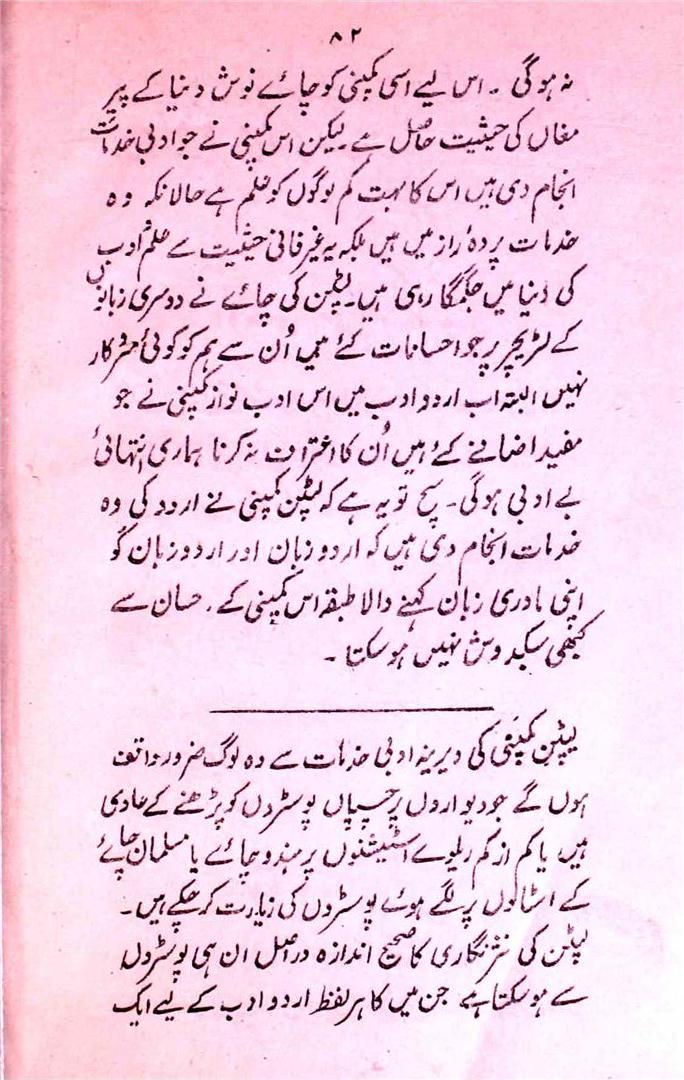 ۸۲
نہ ہوگی ۔ اس لیے اسی کمپنی کو چائے نوش دنیا کے پیر
مغاں کی حیثیت حاصل ہے۔ لیکن اس کمپنی نے جو ادبی خدمات
انجام دی ہیں اس کا بہت کم لوگوں کو علم ہے حالانکہ وہ
خدمات پردۂ راز میں ہیں بلکہ یہ غیر فانی حیثیت سے علم و ادب
کی دنیا میں جگمگا رہی ہیں۔ لپٹن کی چائے نے دوسری زبانوں
کے لٹریچر پر جو احسانات کئے ہیں اُن سے ہم کو کوئی سروکار
نہیں البتہ اب اردو ادب میں اس ادب نواز کمپنی نے جو
مفید اضافے کئے ہیں اُن کا اعتراف نہ کرنا ہماری انتہائی
بے ادبی ہوگی۔ سچ تو یہ ہے کہ لپٹن کمپنی نے اردو کی وہ
خدمات انجام دی ہیں کہ اردو زبان اور اردو زبان کو
اپنی مادری زبان کہنے والا طبقہ اس کمپنی کے احسان سے
کبھی سبکدوش نہیں ہو سکتا ۔
لپٹن کمپنی کی دیرینہ ادبی خدمات سے وہ لوگ ضرور واقف
ہوں گے جو دیواروں پر چسپاں پوسٹروں کو پڑھنے کے عادی
ہیں یا کم از کم ریلوے اسٹیشنوں پر ہندو چائے یا مسلمان چائے
کے اسٹالوں پر لگے ہوئے پوسٹروں کی زیارت کر چکے ہیں۔
لپٹن کی نثر نگاری کا صحیح اندازہ دراصل ان ہی پوسٹروں
سے ہو سکتا ہے جن میں کا ہر لفظ اردو ادب کے لیے ایک